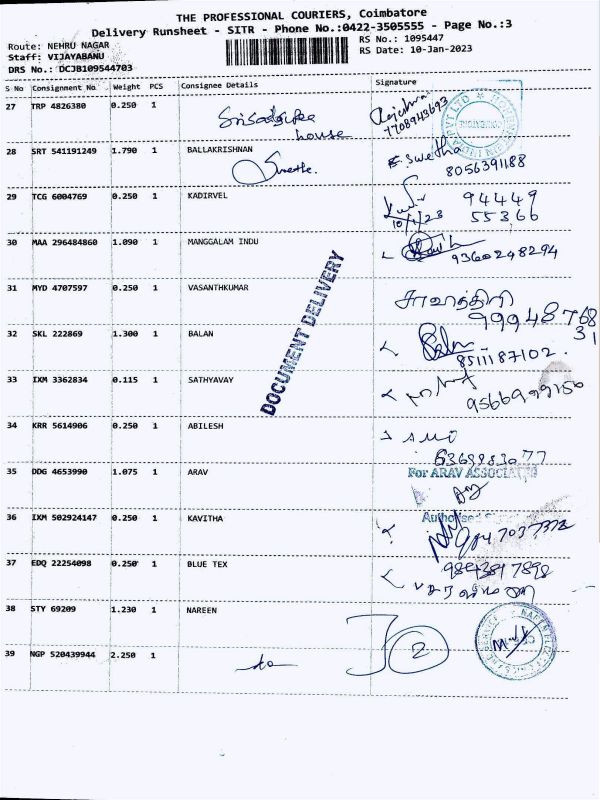 THE PROFESSIONAL COURIERS, Coimbatore
Delivery Runsheet - SITR - Phone No.:0422-3505555 - Page No.:3
Route: NEHRU NAGAR
RS No.: 1095447
Staff: VIJAYABANU
RS Date: 10-Jan-2023
DRS No.: DCJB109544703
S No Consignment No Weight PCS Consignee Details Signature
27 TRP 4826380 0.250 1
house
7708943693
28 SRT 541191249 1.790 1 BALLAKRISHNAN
Swetha. E. Swetha
8056391188
29 TCG 6004769 0.250 1 KADIRVEL
94449
10/1/23 55366
30 MAA 296484860 1.090 1 MANGGALAM INDU
9360248294
DOCUMENT DELIVERY
31 MYD 4707597 0.250 1 VASANTHKUMAR
சாவித்திரி
32 SKL 222869 1.300 1 BALAN
8511187102.
33 IXM 3362834 0.115 1 SATHYAVAY
34 KRR 5614906 0.250 1 ABILESH
35 DDG 4653990 1.075 1 ARAV
For ARAV ASSOCIATED
36 IXM 502924147 0.250 1 KAVITHA
Authorised
37 EDQ 22254098 0.250 1 BLUE TEX
9843847898
38 STY 69209 1.230 1 NAREEN
39 NGP 520439944 2.250 1
2